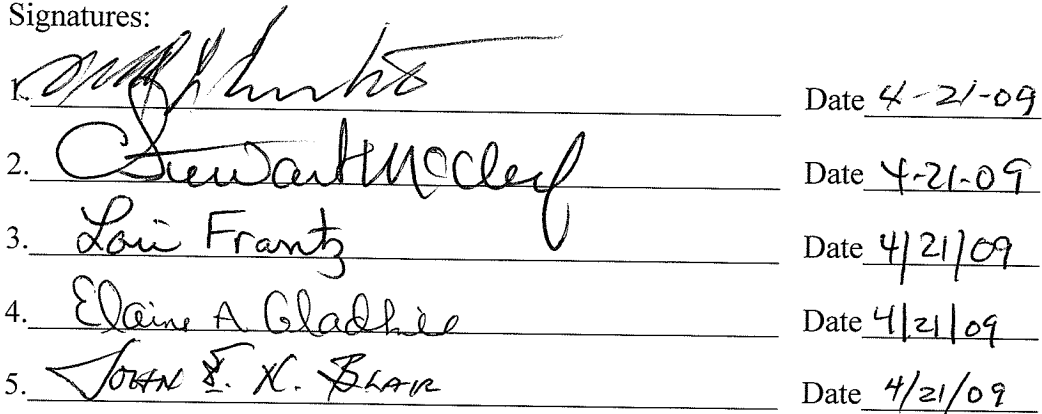 Signatures:
1. Date 4-21-09
2. Stewart McCleaf Date 4-21-09
3. Lori Frantz Date 4/21/09
4. Elaine A Gladhill Date 4/21/09
5. John N. Blair Date 4/21/09